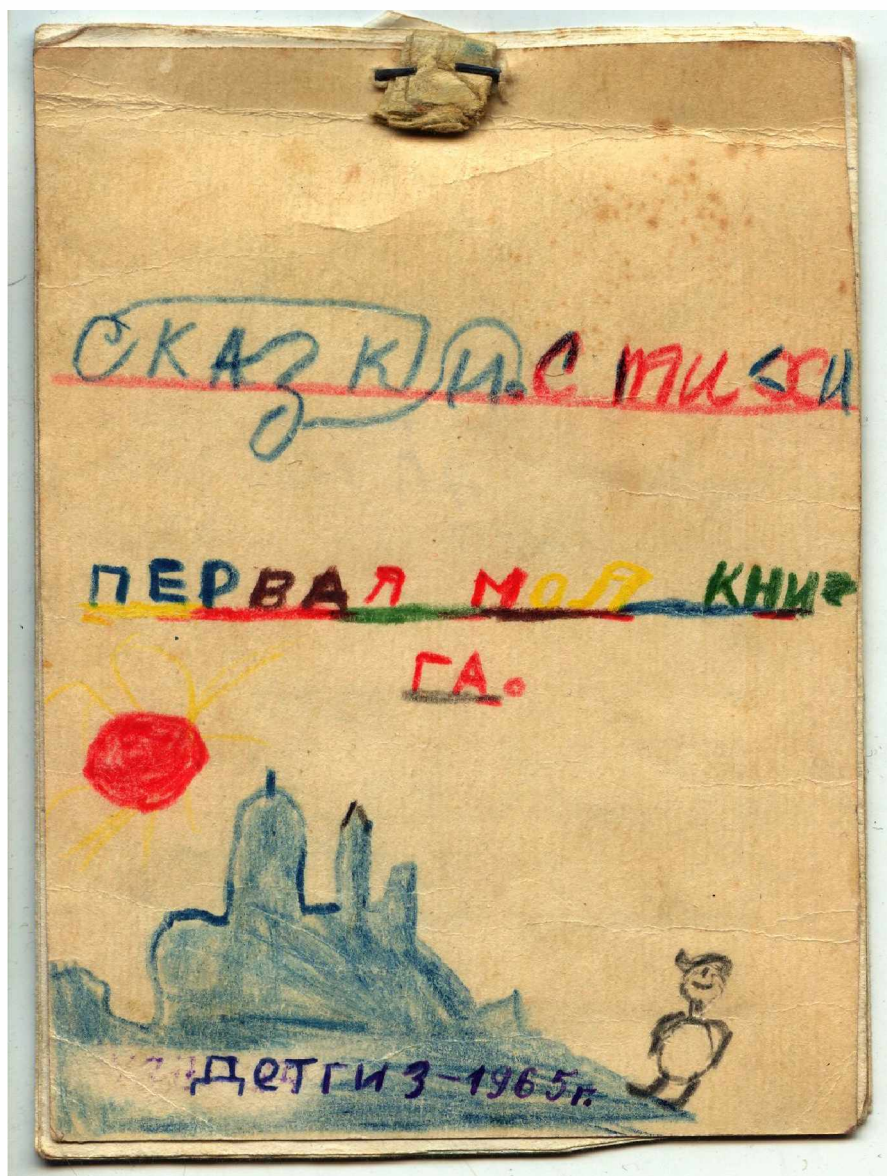 СКАЗКИ. СТИХИ
ПЕРВАЯ МОЯ КНИ
ГА.
Детгиз-1965г.